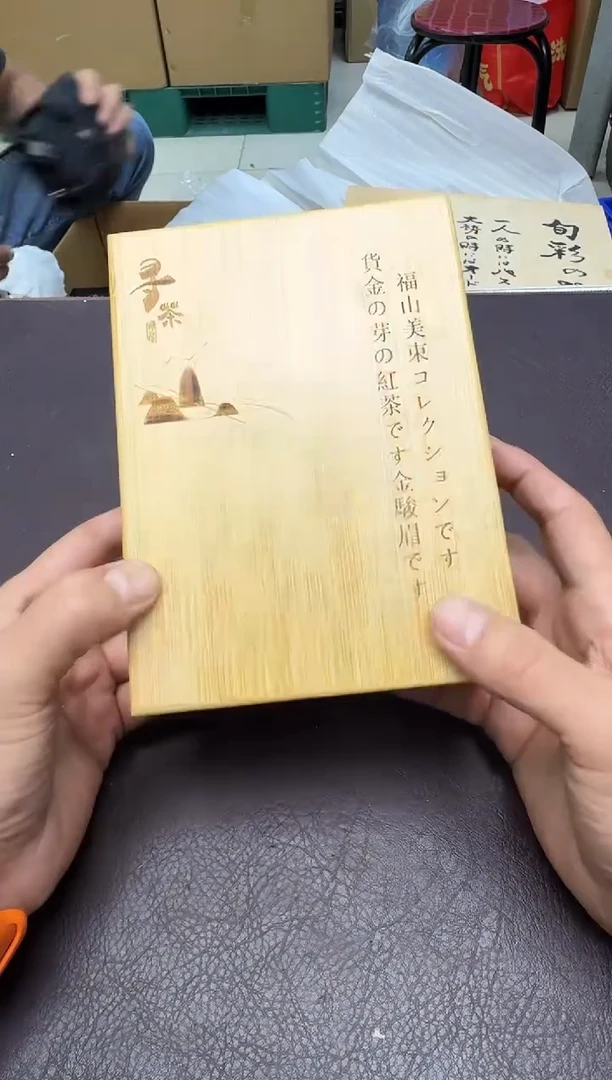 寻茶
福山美東コレクションです
貨金の芽の紅茶です金駿眉です
旬彩の
一人の時には
大勢の時には